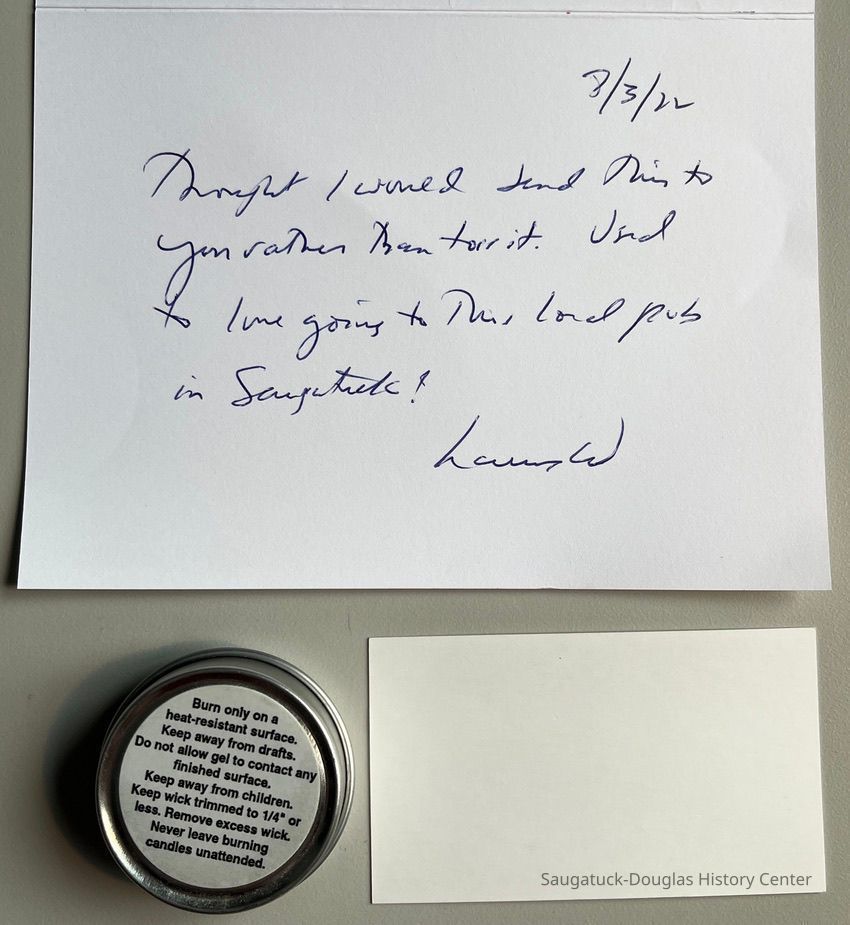 8/3/22
Thought I would send this to
you rather than toss it. Used
to love going to this local pub
in Saugatuck!
Burn only on a
heat-resistant surface.
Keep away from drafts.
Do not allow gel to contact any
finished surface.
Keep away from children.
Keep wick trimmed to 1/4" or
less. Remove excess wick.
Never leave burning
candles unattended.
Saugatuck-Douglas History Center